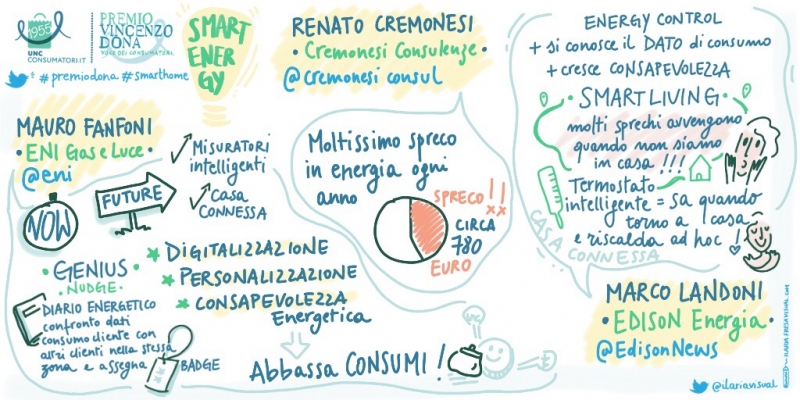 1955
UNC
CONSUMATORI.IT
PREMIO
VINCENZO
DONA
VOCE DEI CONSUMATORI
# premiodona # smarthome
SMART
ENER
GY
MAURO FANFONI
• ENI Gas e Luce •
@eni
NOW
FUTURE
Misuratori
intelligenti
Casa
CONNESSA
• GENIUS •
NUDGE
DIARIO ENERGETICO
confronto dati
consumo cliente con
altri clienti nella stessa
zona e assegna
BADGE
DIGITALIZZAZIONE
PERSONALIZZAZIONE
CONSAPEVOLEZZA
Energetica
Abbassa CONSUMI !
RENATO CREMONESI
• Cremonesi Consulenze •
@cremonesi consul
Moltissimo spreco
in energia ogni
anno
SPRECO !!
CIRCA
780
EURO
ENERGY CONTROL
+ si conosce il DATO di consumo
+ cresce CONSAPEVOLEZZA
• SMARTLIVING •
molti sprechi avvengono
quando non siamo
in casa !!!
Termostato
intelligente = sa quando
torno a casa
e riscalda ad hoc !
CASA CONNESSA
MARCO LANDONI
• EDISON Energia •
@EdisonNews
@ilariavisual